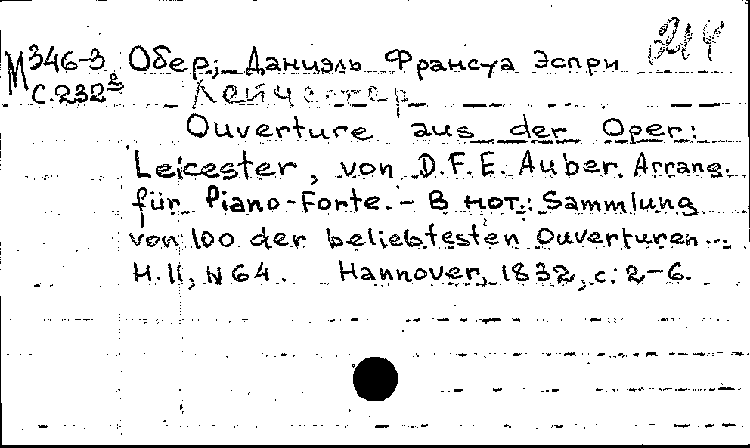 M 346-3 Обер, Даниэль Франсуа Эспри 214
С.232 Лейчестер
Ouverture aus der Oper:
Leicester, von D.F.E. Auber. Arrang.
für Piano-Forte. - В нот.: Sammlung
von 100 der beliebtesten Ouverturen...
H.11, N 64. Hannover, 1832, с. 2-6.